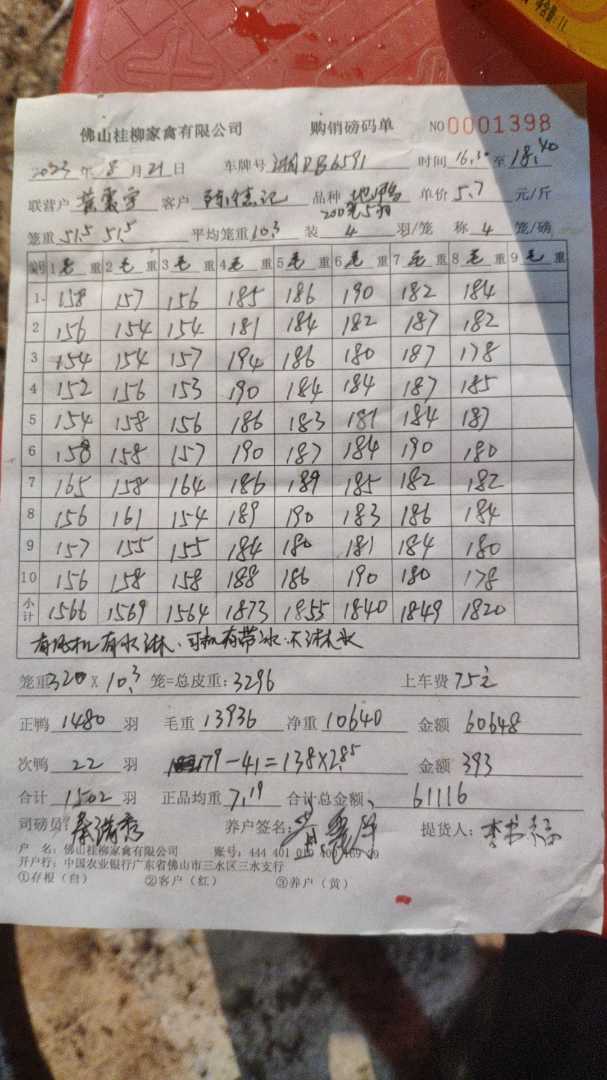 佛山桂柳家禽有限公司 购销磅码单 NO 0001398
2023 年 8 月 21 日 车牌号 湘DB6591 时间 16.30 至 18.40
联营户 客户 品种 单价 5.7 元/斤
笼重 51.5 51.5 平均笼重 10.3 装 4 羽/笼 称 4 笼/磅
编号 1 毛 重 2 毛 重 3 毛 重 4 毛 重 5 毛 重 6 毛 重 7 毛 重 8 毛 重 9 毛 重
1 158 157 156 185 186 190 182 184
2 156 154 154 181 184 182 187 182
3 154 154 157 194 186 180 187 178
4 152 156 153 190 184 184 187 185
5 154 158 156 186 183 181 184 187
6 158 158 157 190 187 184 190 180
7 165 158 164 186 189 185 182 182
8 156 161 154 189 190 183 186 184
9 157 155 155 184 180 181 184 180
10 156 158 158 188 186 190 180 178
小计 1566 1569 1564 1873 1855 1840 1849 1820
有风机有水淋、司机有带冰、不淋水
笼重 320 × 10.3 笼=总皮重: 3296 上车费 75元
正鸭 1480 羽 毛重 13936 净重 10640 金额 60648
次鸭 22 羽 179-41=138×2.85 金额 393
合计 1502 羽 正品均重 7.19 合计总金额 61116
司磅员: 养户签名: 提货人:
户 名: 佛山桂柳家禽有限公司 账号: 444 401 010 400 469 29
开户行: 中国农业银行广东省佛山市三水区三水支行
①存根(白) ②客户(红) ③养户(黄)